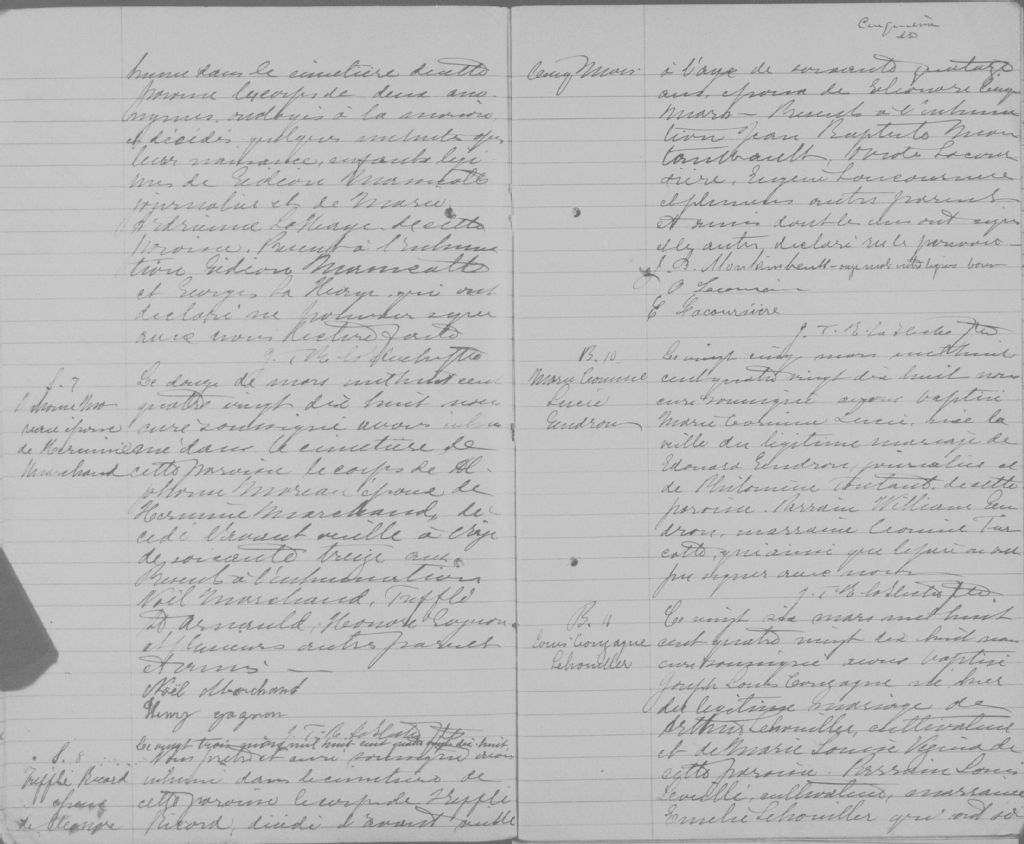 humé dans le cimetière de cette
paroisse les corps de deux ano-
nymes, ondoyés à la maison
et décédés quelques minutes après
leur naissance, enfants légi-
mes de Gédéon Marcotte
journalier et de Marie
Adrienne LaHaye de cette
paroisse. Présents à l'inhuma
tion Gédéon Marcotte
et Georges La Haye qui ont
déclaré ne pouvoir signer
avec nous Lecture faite
S. 7
Alphonse Mo
reau époux
de Herminie
Marchand
Le douze de mars mil huit cent
quatre vingt dix huit nous
curé soussigné avons inhu
mé dans le cimetière de
cette paroisse le corps de Al-
phonse Moreau époux de
Hermine Marchand, dé-
cédé l'avant veille à l'âge
de soixante treize ans.
Présents à l'inhumation
Noël Marchand, Trefflé
D Arnauld, Honoré Gagnon
et plusieurs autres parents
et amis —
Noël Marchand
Henry gagnon
S. 8
Trefflé Ricard
époux
de Eléonore
Le vingt trois mars mil huit cent quatre vingt dix huit,
Nous prêtre et curé soussigné avons
inhumé dans le cimetière de
cette paroisse le corps de Trefflé
Ricard, décédé l'avant veille
Cinquième
Cinq Mars
à l'âge de soixante quatorze
ans époux de Eléonore Cinq
Mars — Présents à l'inhuma
tion Jean Baptiste Mon
tambault, Lacour
sière, Eugène Lacoursière
et plusieurs autres parents
et amis dont les uns ont signé
et les autres déclaré ne le pouvoir —
J. B. Montambault
E Lacoursière
B. 10
Marie Corinne
Lucie
Gendron
Le vingt cinq mars mil huit
cent quatre vingt dix huit nous
curé soussigné avons baptisé
Marie Corinne Lucie, née la
veille du légitime mariage de
Edouard Gendron, journalier et
de Philomène Toutant de cette
paroisse. Parrain William Gen
dron, marraine Corinne Tur
cotte, qui ainsi que le père n'ont
pu signer avec nous
B. 11
Louis Gonzague
Lehouiller
Le vingt six mars mil huit
cent quatre vingt dix huit nous
curé soussigné avons baptisé
Joseph Louis Gonzague né hier
du légitime mariage de
Arthur Lehouiller, cultivateur
et de Marie Louise de
cette paroisse. Parrain Louis
Leveillé, cultivateur, marraine
Emélie Lehouiller qui ont